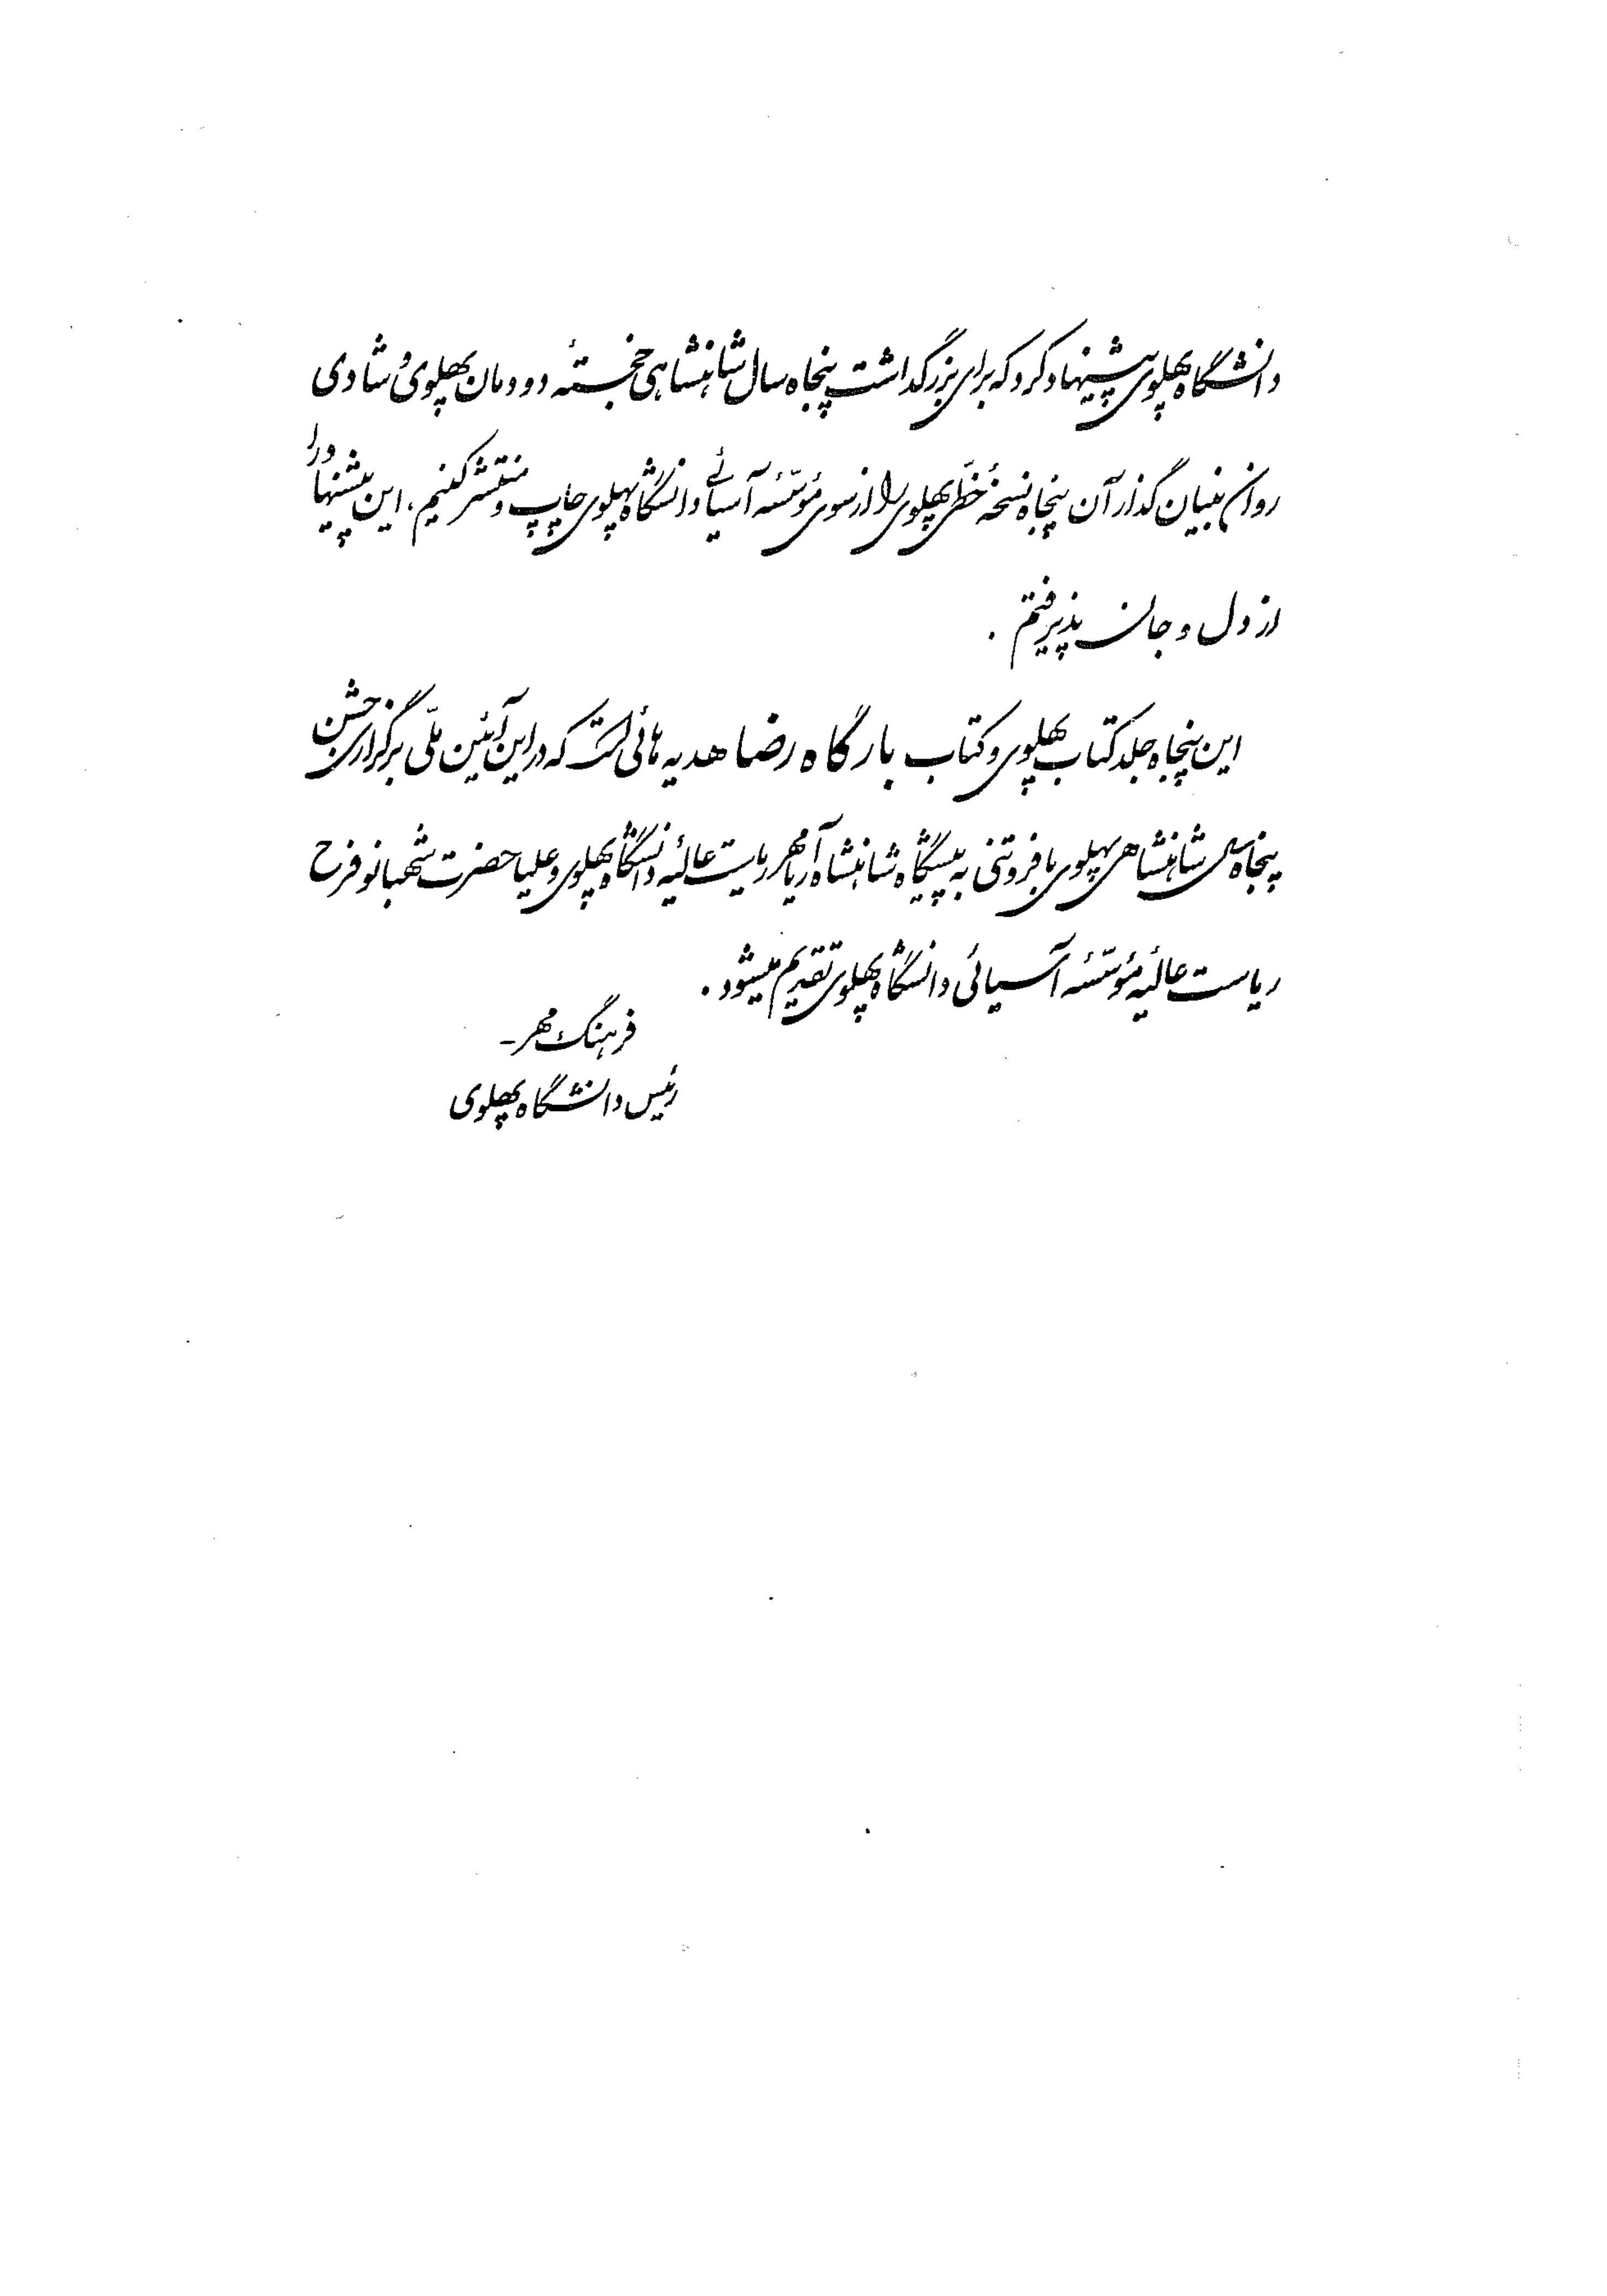 دانشگاه پهلوی پیشنهاد کرد که برای بزرگداشت پنجاه سال شاهنشاهی خجستهٔ دودمان پهلوی و شادی
روان بنیان گذار آن پنجاه نسخهٔ خطّی پهلوی را از سوی مؤسّسه آسیائی دانشگاه پهلوی چاپ و منتشر کنیم. این پیشنهاد را
از دل و جان پذیرفتم.
این پنجاه جلد کتاب پهلوی و کتاب بارگاه رضا هدیه هائی است که در این آئین ملّی برگزاری جشن
پنجاه سال شاهنشاهی پهلوی با فروتنی به پیشگاه شاهنشاه آریامهر ریاست عالیه دانشگاه پهلوی و علیا حضرت شهبانو فرح
ریاست عالیه مؤسّسه آسیائی دانشگاه پهلوی تقدیم میشود.
فرهنگ مهر-
رئیس دانشگاه پهلوی